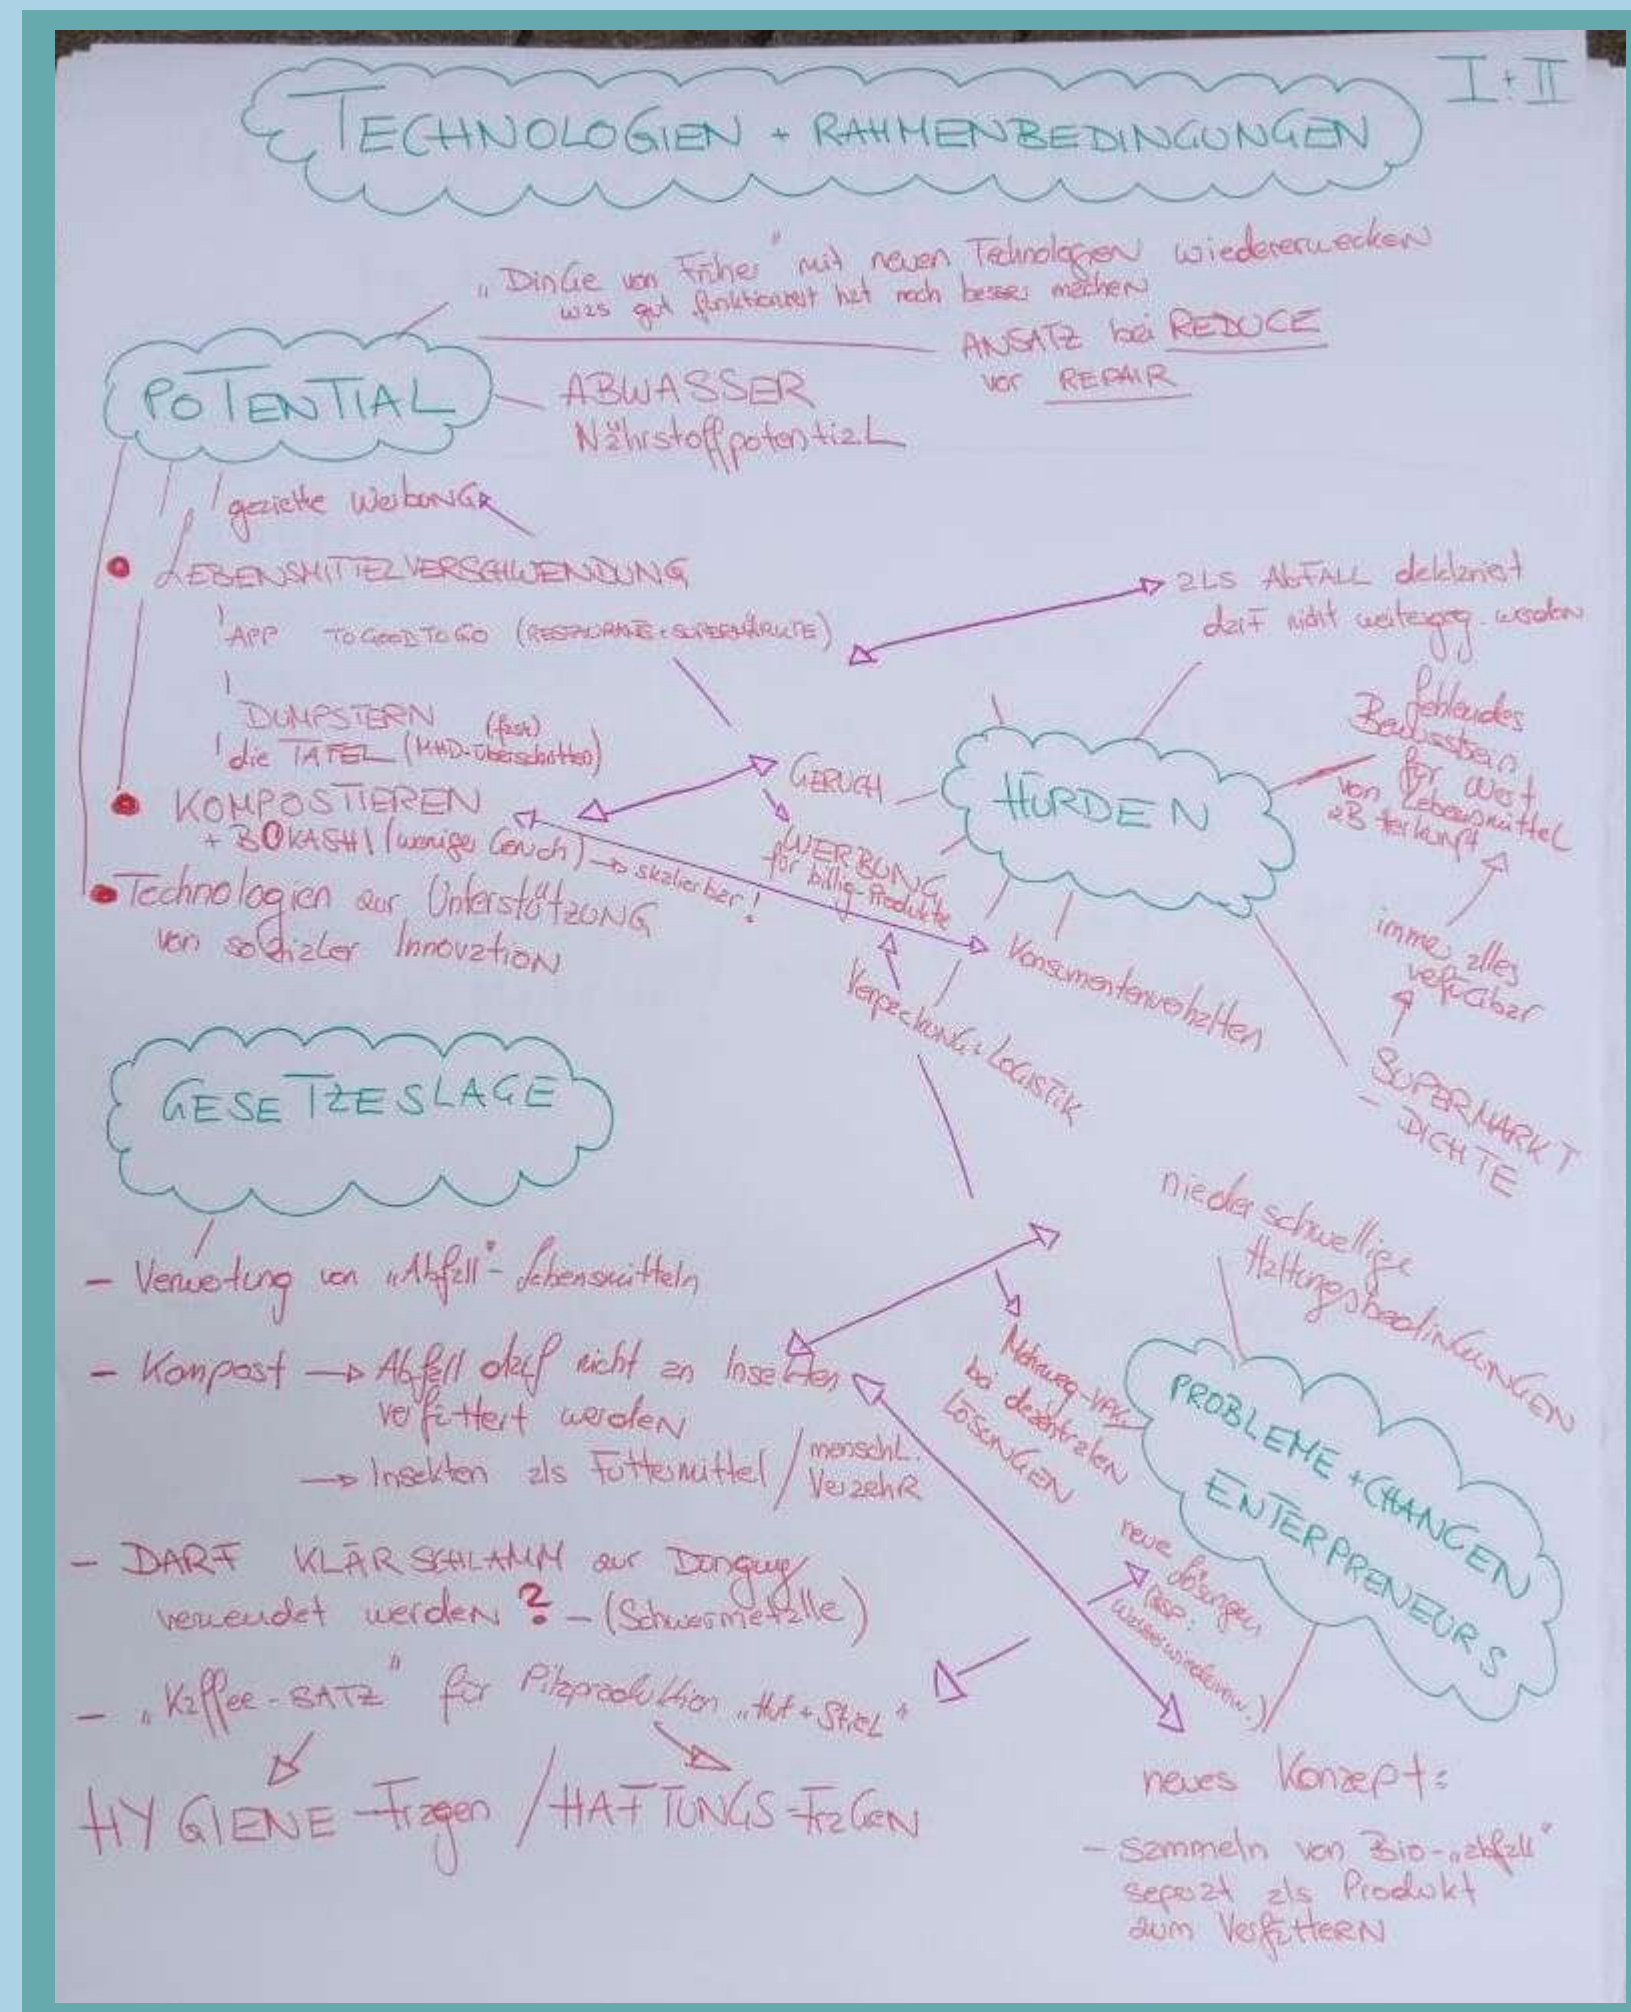 I + II
TECHNOLOGIEN + RAHMENBEDINGUNGEN
„Dinge von Früher" mit neuen Technologien wiedererwecken
was gut funktioniert hat noch besser machen
ANSATZ bei REDUCE
vor REPAIR
POTENTIAL
ABWASSER
Nährstoffpotential
gezielte Werbung
LEBENSMITTELVERSCHWENDUNG
APP TO GOOD TO GO (RESTAURANT + SUPERMÄRKTE)
DUMPSTERN
die TAFEL (MHD-überschritten)
(fast)
KOMPOSTIEREN
+ BOKASHI (weniger Geruch) → skalierbar!
Technologien zur Unterstützung
von sozialer Innovation
als ABFALL deklariert
darf nicht weitergeg. werden
HÜRDEN
GERUCH
WERBUNG
für billig-Produkte
Verpackung + LOGISTIK
Konsumentenverhalten
fehlendes
Bewusstsein
für Wert
von Lebensmittel
zB Herkunft
immer alles
verfügbar
SUPERMARKT
- DICHTE
GESETZESLAGE
- Verwertung von „Abfall"-Lebensmitteln
- Kompost → Abfall darf nicht an Insekten
verfüttert werden
→ Insekten als Futtermittel / menschl.
Verzehr
- DARF KLÄRSCHLAMM zur Düngung
verwendet werden ? - (Schwermetalle)
- „Kaffee-SATZ" für Pilzproduktion „Hut + Stiel"
HYGIENE-Fragen / HAFTUNGS-FRAGEN
niederschwellige
Haltungsbedingungen
PROBLEME + CHANCEN
ENTERPRENEURS
Mehrweg-VPKG
bei dezentralen
LÖSUNGEN
neue Lösungen
(BSP:
neues Konzept:
- Sammeln von Bio-„abfall"
separat als Produkt
zum Verfüttern